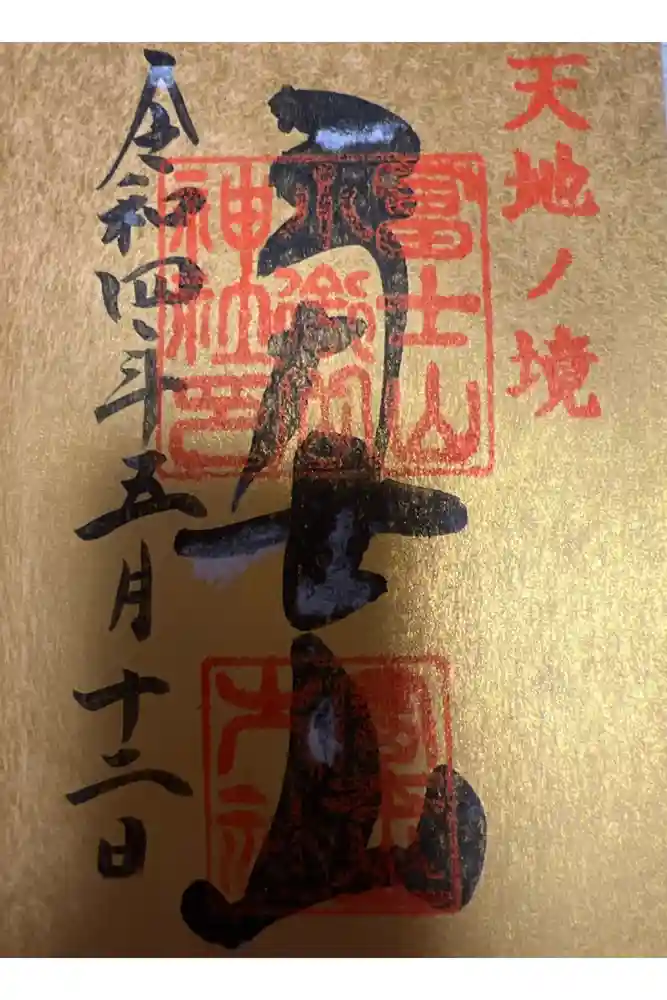 天地ノ境
冨士山
冨士山
小御嶽
神社印
令和四年五月十二日